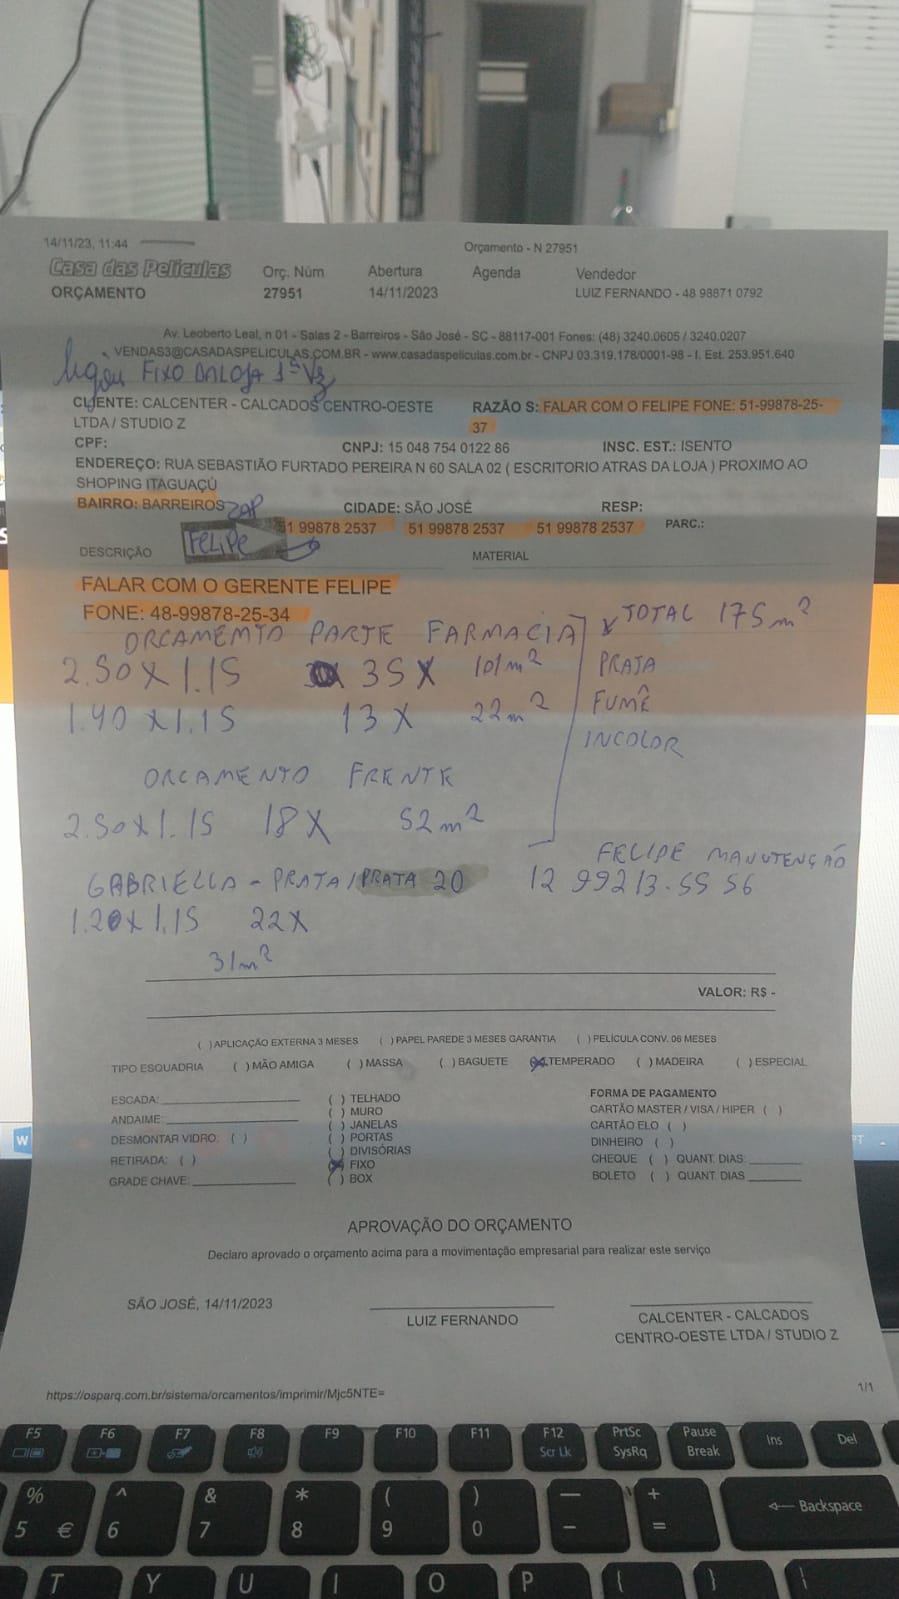 14/11/23, 11:44
Orçamento - N 27951
Casa das Películas Orç. Núm Abertura Agenda Vendedor
ORÇAMENTO 27951 14/11/2023 LUIZ FERNANDO - 48 98871 0792
Av. Leoberto Leal, n 01 - Salas 2 - Barreiros - São José - SC - 88117-001 Fones: (48) 3240.0605 / 3240.0207
VENDAS3@CASADASPELICULAS.COM.BR - www.casadaspeliculas.com.br - CNPJ 03.319.178/0001-98 - I. Est. 253.951.640
ligou FIXO DA LOJA 1ª Vz
CLIENTE: CALCENTER - CALCADOS CENTRO-OESTE RAZÃO S: FALAR COM O FELIPE FONE: 51-99878-25-
LTDA / STUDIO Z 37
CPF: CNPJ: 15 048 754 0122 86 INSC. EST.: ISENTO
ENDEREÇO: RUA SEBASTIÃO FURTADO PEREIRA N 60 SALA 02 ( ESCRITORIO ATRAS DA LOJA ) PROXIMO AO
SHOPING ITAGUAÇÚ
BAIRRO: BARREIROS ZAP CIDADE: SÃO JOSÉ RESP:
FELIPE 1 99878 2537 51 99878 2537 51 99878 2537 PARC.:
DESCRIÇÃO MATERIAL
FALAR COM O GERENTE FELIPE
FONE: 48-99878-25-34
ORCAMEMTO PARTE FARMACIA TOTAL 175m²
2.50 X 1.15 35 X 101m² PRATA
1.40 X 1.15 13 X 22m² FUMÊ
INCOLOR
ORCAMENTO FRENTE
2.50 X 1.15 18 X 52m²
FELIPE MANUTENÇÃO
GABRIELLA - PRATA / PRATA 20 12 99213.55 56
1.20 X 1.15 22X
31m²
VALOR: R$ -
( ) APLICAÇÃO EXTERNA 3 MESES ( ) PAPEL PAREDE 3 MESES GARANTIA ( ) PELÍCULA CONV. 06 MESES
TIPO ESQUADRIA ( ) MÃO AMIGA ( ) MASSA ( ) BAGUETE (X) TEMPERADO ( ) MADEIRA ( ) ESPECIAL
ESCADA:
ANDAIME:
DESMONTAR VIDRO: ( )
RETIRADA: ( )
GRADE CHAVE:
( ) TELHADO
( ) MURO
( ) JANELAS
( ) PORTAS
( ) DIVISÓRIAS
(X) FIXO
( ) BOX
FORMA DE PAGAMENTO
CARTÃO MASTER / VISA / HIPER ( )
CARTÃO ELO ( )
DINHEIRO ( )
CHEQUE ( ) QUANT. DIAS:
BOLETO ( ) QUANT. DIAS
APROVAÇÃO DO ORÇAMENTO
Declaro aprovado o orçamento acima para a movimentação empresarial para realizar este serviço
SÃO JOSÉ, 14/11/2023
LUIZ FERNANDO
CALCENTER - CALCADOS
CENTRO-OESTE LTDA / STUDIO Z
https://osparq.com.br/sistema/orcamentos/imprimir/Mjc5NTE= 1/1
F5 F6 F7 F8 F9 F10 F11 F12 PrtSc Pause Ins Del
Scr Lk SysRq Break
% ^ & * ( ) — +
5 € 6 7 8 9 0 - = Backspace
T Y U I O P { }